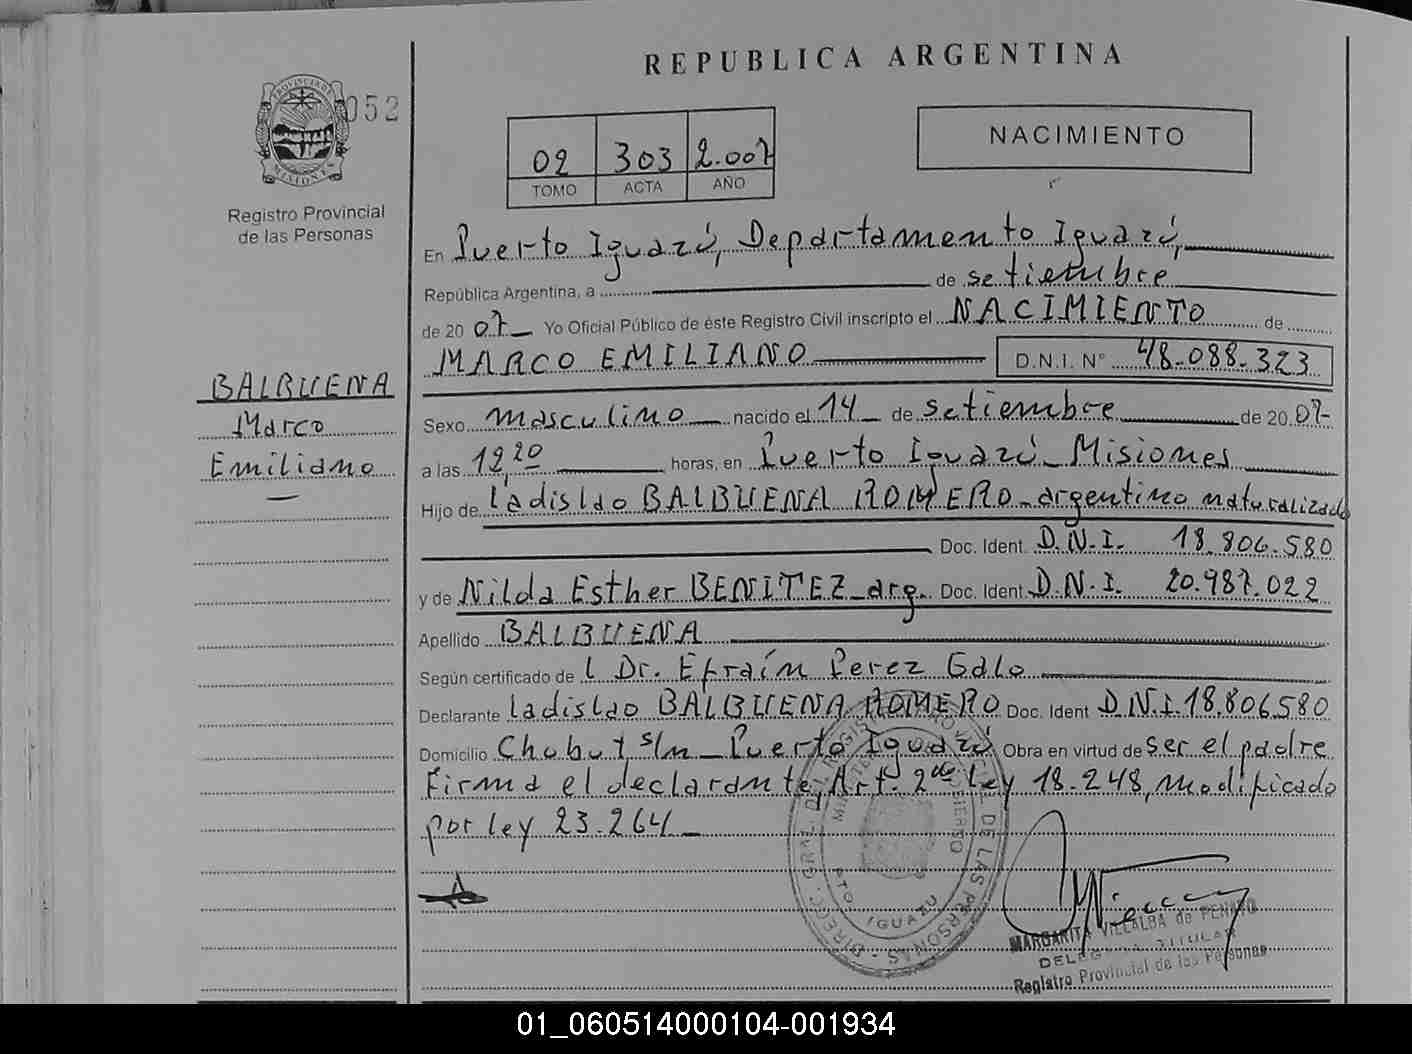 REPUBLICA ARGENTINA
052
PROVINCIA DE
MISIONES
Registro Provincial
de las Personas
02 303 2.007
TOMO ACTA AÑO
NACIMIENTO
En Puerto Iguazú, Departamento Iguazú,
República Argentina, a de setiembre
de 20 07 Yo Oficial Público de éste Registro Civil inscripto el NACIMIENTO de
MARCO EMILIANO D.N.I. N° 48-088-323
BALBUENA
Marco
Emiliano
Sexo masculino nacido el 14 de setiembre de 20 07-
a las 12,20 horas, en Puerto Iguazú Misiones
Hijo de Ladislao BALBUENA ROMERO-argentino naturalizado
Doc. Ident. D.N.I. 18.806.580
y de Nilda Esther BENITEZ-arg. Doc. Ident D.N.I. 20.987.022
Apellido BALBUENA
Según certificado de l Dr. Efraín Perez Galo
Declarante Ladislao BALBUENA ROMERO Doc. Ident D.N.I. 18.806580
Domicilio Chubut s/n - Puerto Iguazú Obra en virtud de ser el padre
Firma el declarante, Art. 2do Ley 18.248, modificado
por ley 23.264
DIRECC. GRAL. DEL REGISTRO PROVINCIAL DE LAS PERSONAS
PTO. IGUAZU
MARGARITA VILLALBA de PENAYO
DELEGADA TITULAR
Registro Provincial de las Personas
01_060514000104-001934